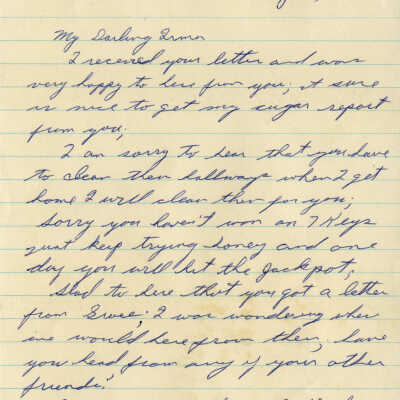 My Darling Erma
I received your letter and was
very happy to here from you; it sure
is nice to get my sugar report
from you;
I am sorry to hear that you have
to clean them hallways when I get
home I will clean them for you;
Sorry you haven't won on 7 Keys
just keep trying honey and one
day you will hit the Jackpot;
Glad to here that you got a letter
from ; I was wondering when
we would here from them, have
you heard from any of your other
friends?